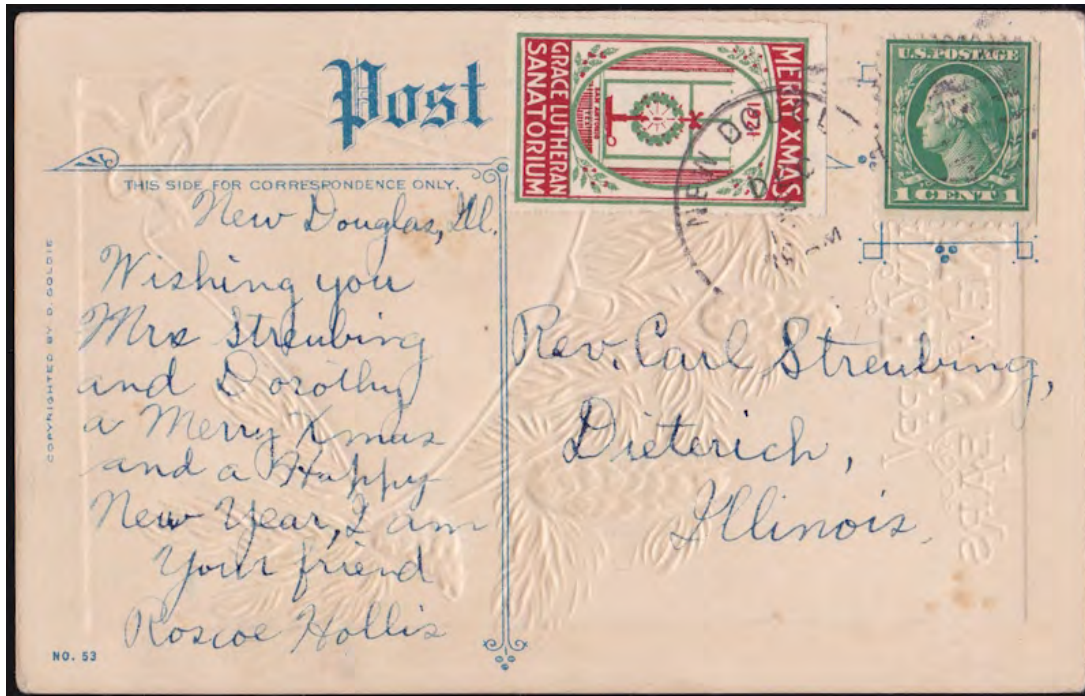 Post
THIS SIDE FOR CORRESPONDENCE ONLY.
COPYRIGHTED BY D. GOLDIE
New Douglas, Ill.
Wishing you
Mrs Streubing
and Dorothy
a Merry Xmas
and a Happy
New Year, I am
Your friend
Roscoe Hollis
NO. 53
MERRY XMAS
1921
SAN ANTONIO
TEXAS
GRACE LUTHERAN
SANATORIUM
NEW DOUGL
DEC
U.S. POSTAGE
1 CENT 1
Rev. Carl Streubing,
Dieterich,
Illinois.